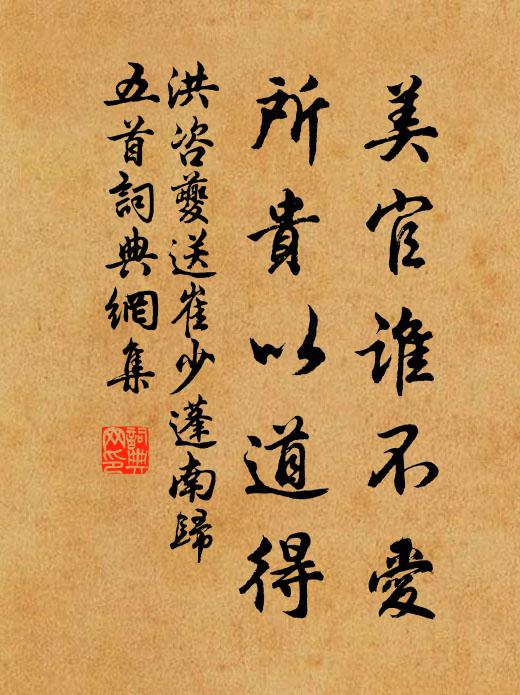 美官誰不愛
所貴以道得
洪咨夔送崔少蓬南歸
五首詞典網集
詞典网印